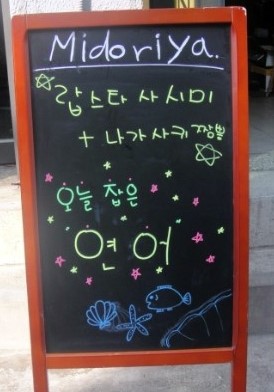 Midoriya.
랍스타 사시미
+ 나가사키 짬뽕
오늘 잡은
"연어"